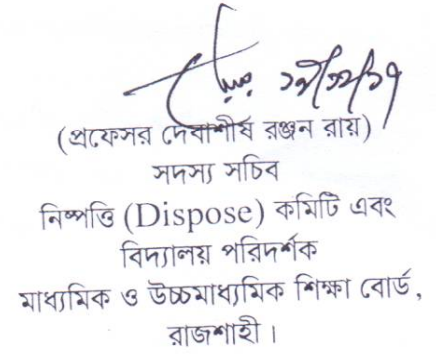 (প্রফেসর দেবাশীষ রঞ্জন রায়)
সদস্য সচিব
নিষ্পত্তি (Dispose) কমিটি এবং
বিদ্যালয় পরিদর্শক
মাধ্যমিক ও উচ্চমাধ্যমিক শিক্ষা বোর্ড,
রাজশাহী।